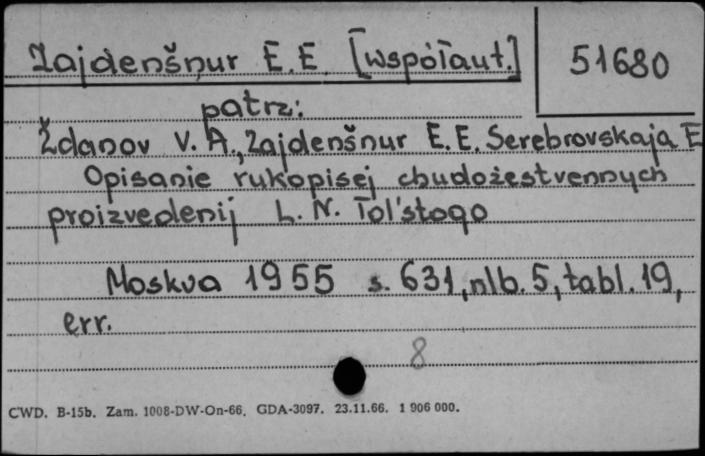 Zajdenšnur E.E. [współaut.]
51680
patrz:
Ždanov V.A., Zajdenšnur E.E. Serebrovskaja E
Opisanie rukopisej chudožestvennych
proizvedenij L.N. Tol'stogo
Moskva 1955 s. 631, nlb. 5, tabl. 19,
err.
8
CWD. B-15b. Zam. 1008-DW-On-66. GDA-3097. 23.11.66. 1 906 000.